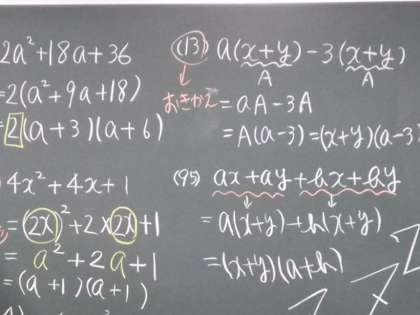 2a²+18a+36
=2(a²+9a+18)
=2(a+3)(a+6)
)4x²+4x+1
=(2x)²+2×2x+1
=a²+2a+1
=(a+1)(a+1)
(13) a(x+y)-3(x+y)
A A
おきかえ =aA-3A
=A(a-3)=(x+y)(a-3
(95) ax+ay+bx+by
=a(x+y)+b(x+y)
=(x+y)(a+b)